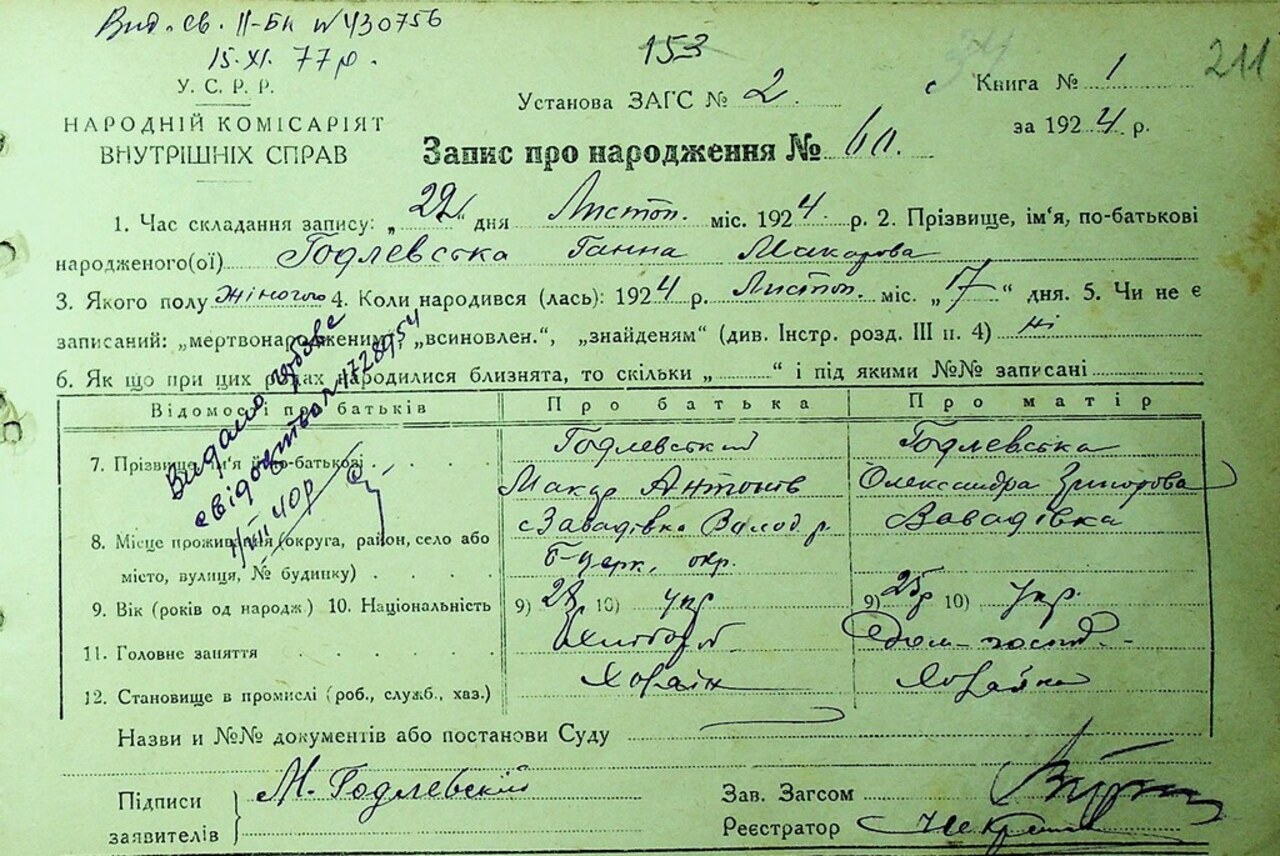 Вид. св. ІІ-БК № 430756
15.XI. 77 р.
153
211
У. С. Р. Р.
НАРОДНІЙ КОМІСАРІЯТ
ВНУТРІШНІХ СПРАВ
Установа ЗАГС № 2.
Книга № 1
за 1924 р.
Запис про народження № 60.
1. Час складання запису: „22“ дня Листоп. міс. 1924 р. 2. Прізвище, ім'я, по-батькові
народженого(ої) Годлевська Ганна Макарова
3. Якого полу жіночого 4. Коли народився (лась): 1924 р. Листоп. міс. „17“ дня. 5. Чи не є
записаний: „мертвонародженим“, „всиновлен.“, „знайденям“ (див. Інстр. розд. III п. 4) ні
6. Як що при цих родах народилися близнята, то скільки „ “ і під якими №№ записані
Відомості про батьків Про батька Про матір
7. Прізвище, ім'я й по-батькові Годлевський Годлевська
Макар Антонів Олександра Григорова
8. Місце проживання (округа, район, село або с Завадівка Волод. р. Завадівка
місто, вулиця, № будинку) Б-Церк. окр.
9. Вік (років од народж.) 10. Національність 9) 28 р 10) укр 9) 25 р 10) укр.
11. Головне заняття Хлібороб Дом-госп.
12. Становище в промислі (роб., служб., хаз.) Хозяїн Хозяйка
Видано
свідоцтво
1/VII 40р
Назви и №№ документів або постанови Суду
Підписи
заявителів
М. Годлевский
Зав. Загсом
Реєстратор